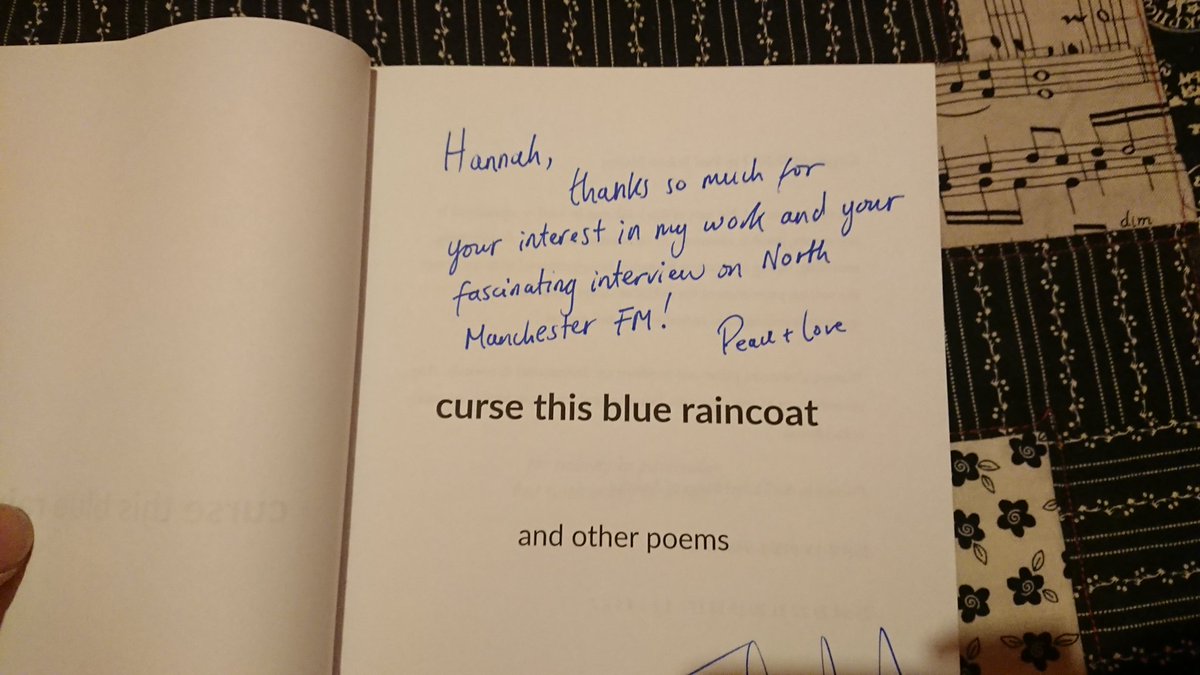 Hannah,
thanks so much for
your interest in my work and your
fascinating interview on North
Manchester FM!
Peace + Love
curse this blue raincoat
and other poems
dim